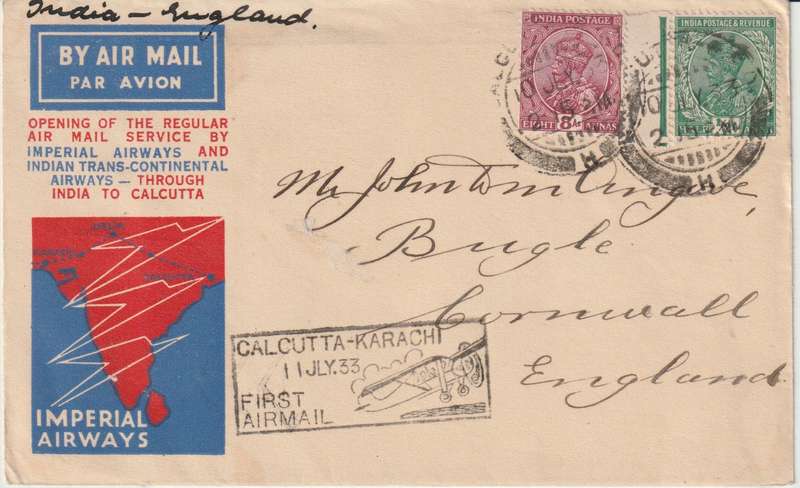 India – England.
BY AIR MAIL
PAR AVION
OPENING OF THE REGULAR
AIR MAIL SERVICE BY
IMPERIAL AIRWAYS AND
INDIAN TRANS-CONTINENTAL
AIRWAYS – THROUGH
INDIA TO CALCUTTA
DELHI
KARACHI
CALCUTTA
IMPERIAL
AIRWAYS
INDIA POSTAGE
EIGHT 8As ANNAS
INDIA POSTAGE & REVENUE
10 JLY
10 JLY
Mr John
Bugle
Cornwall
England
CALCUTTA-KARACHI
11 JLY.33
FIRST
AIRMAIL